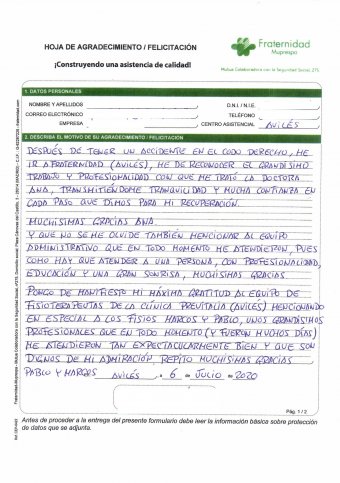 HOJA DE AGRADECIMIENTO / FELICITACIÓN
Fraternidad
Muprespa
Mutua Colaboradora con la Seguridad Social, 275
¡Construyendo una asistencia de calidad!
1. DATOS PERSONALES
NOMBRE Y APELLIDOS
D.N.I. / N.I.E.
CORREO ELECTRÓNICO
TELÉFONO
EMPRESA
CENTRO ASISTENCIAL AVILÉS
2. DESCRIBA EL MOTIVO DE SU AGRADECIMIENTO / FELICITACIÓN
DESPUÉS DE TENER UN ACCIDENTE EN EL CODO DERECHO, ME
IR A FRATERNIDAD (AVILÉS), HE DE RECONOCER EL GRANDÍSIMO
TRABAJO Y PROFESIONALIDAD CON QUE ME TRATÓ LA DOCTORA
ANA, TRANSMITIÉNDOME TRANQUILIDAD Y MUCHA CONFIANZA EN
CADA PASO QUE DIMOS PARA MI RECUPERACIÓN.
MUCHISIMAS GRACIAS ANA.
Y QUE NO SE ME OLVIDE TAMBIÉN MENCIONAR AL EQUIPO
ADMINISTRATIVO QUE EN TODO MOMENTO ME ATENDIERON, PUES
COMO HAY QUE ATENDER A UNA PERSONA, CON PROFESIONALIDAD,
EDUCACIÓN Y UNA GRAN SONRISA, MUCHISIMAS GRACIAS.
PONGO DE MANIFIESTO MI MÁXIMA GRATITUD AL EQUIPO DE
FISIOTERAPEUTAS DE LA CLÍNICA PREVITALIA (AVILES) MENCIONANDO
EN ESPECIAL A LOS FISIOS MARCOS Y PABLO, UNOS GRANDÍSIMOS
PROFESIONALES QUE EN TODO MOMENTO (Y FUERON MUCHOS DÍAS)
ME ATENDIERON TAN ESPECTACULARMENTE BIEN Y QUE SON
DIGNOS DE MI ADMIRACIÓN REPITO MUCHÍSIMAS GRACIAS
PABLO Y MARCOS
AVILÉS - 6 - JULIO - 2020
Pág. 1 / 2
Antes de proceder a la entrega del presente formulario debe leer la información básica sobre protección
de datos que se adjunta.